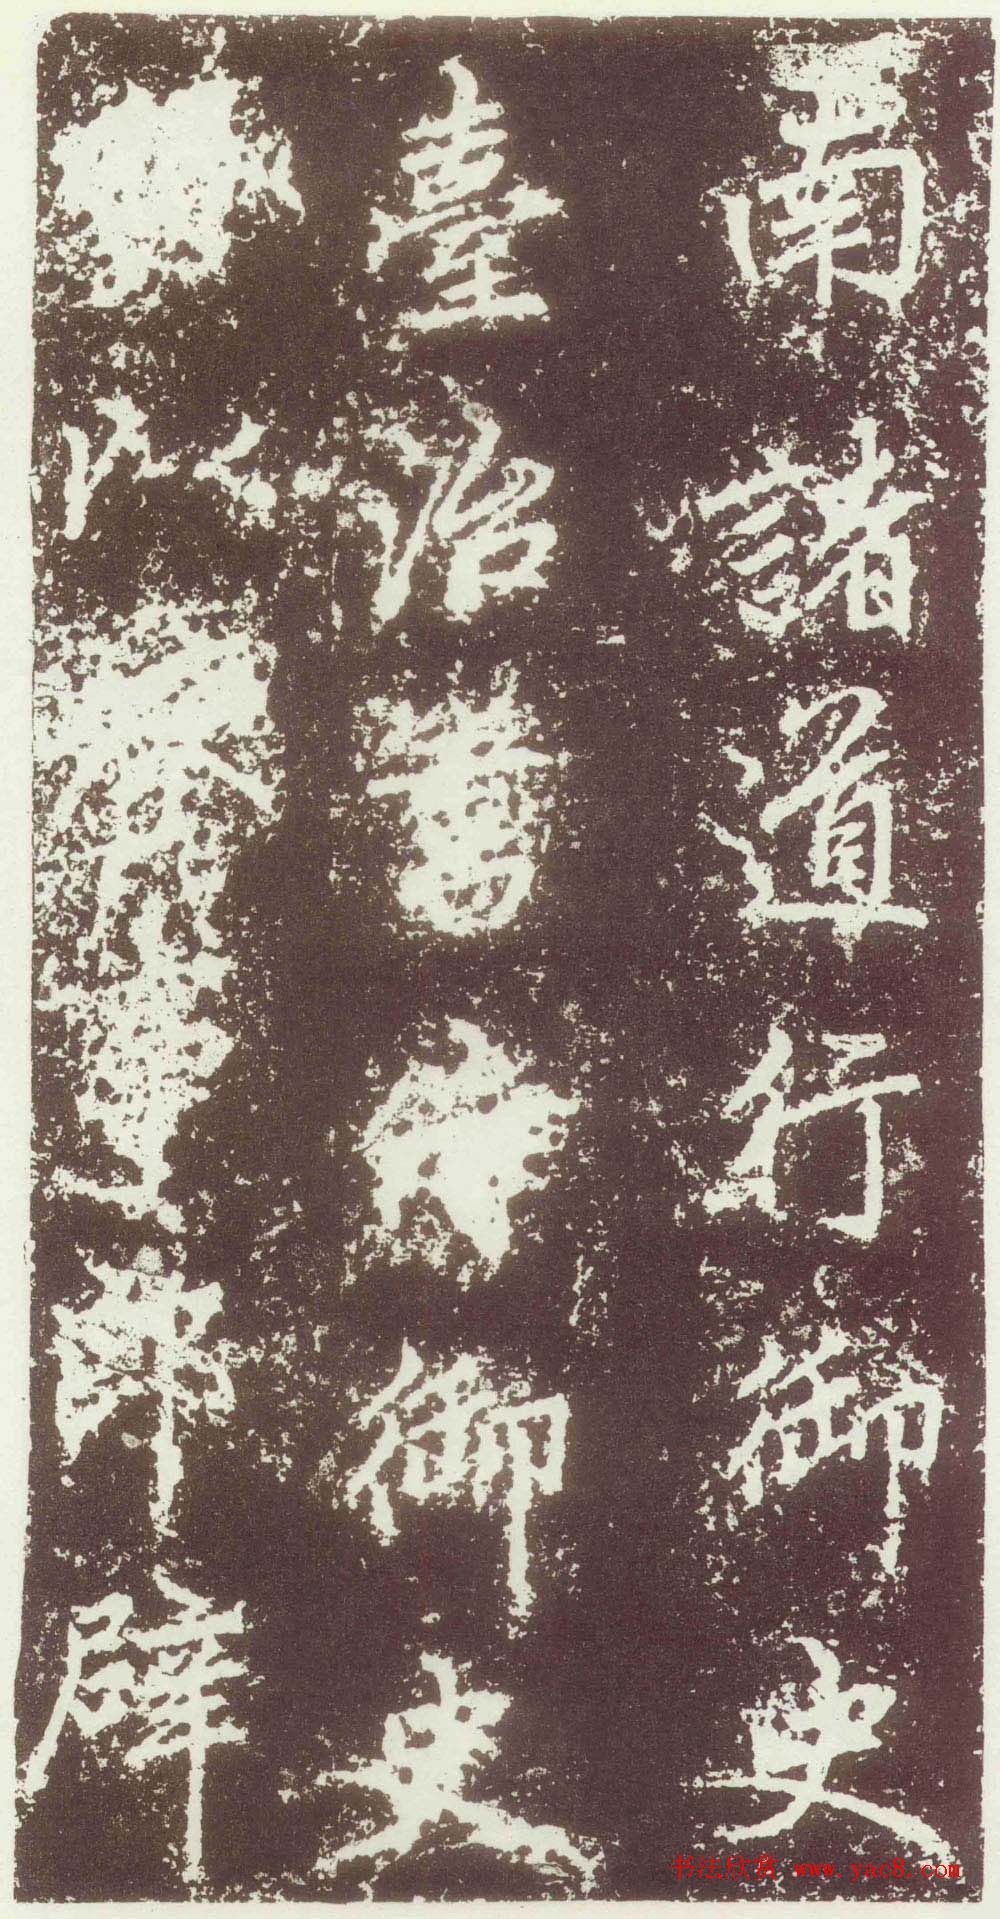 南諸道行御史
臺治書侍御史
以 師辟
书法欣赏 www.yac8.com